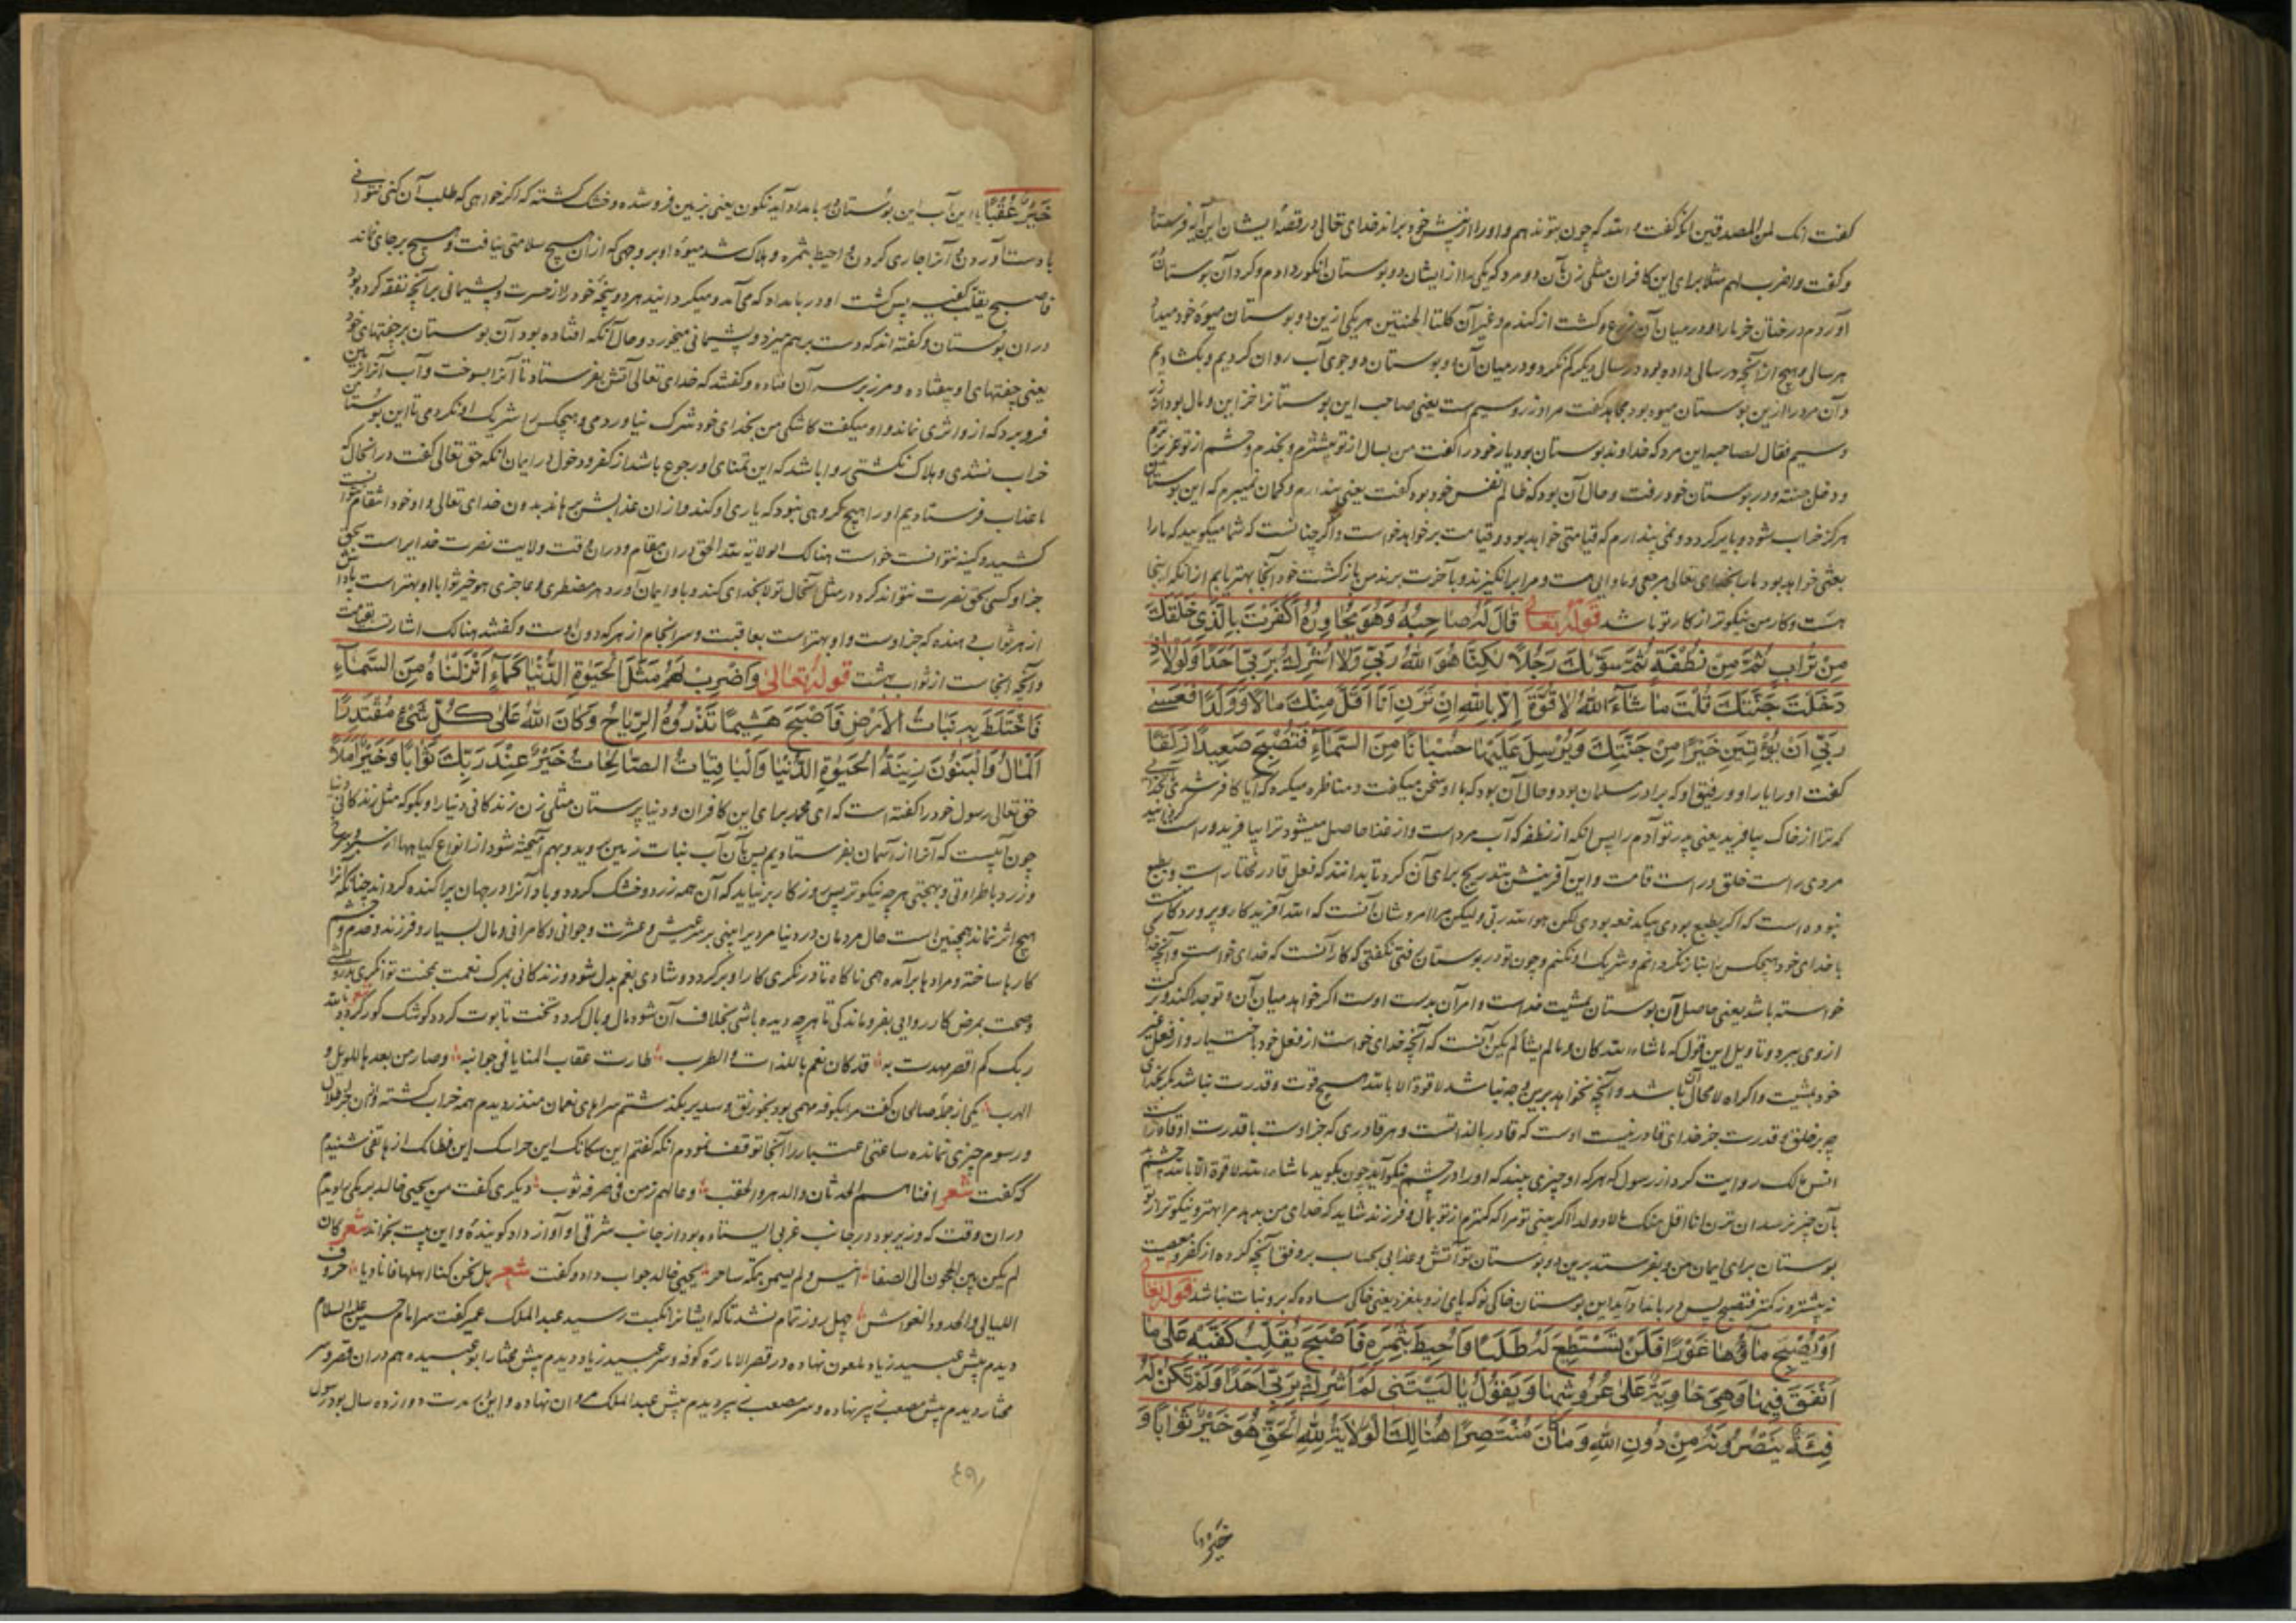 کفت انک لمن المصدقین انکه کفت و
و کفت واضرب لهم مثلا برای این کافران مثلی زن بآن دو مرد که یکی را از ایشان دو بوستان انکور دادم و کرد آن بوستان
آوردم درختان خرما را و در میان آن زرع و کشت از کندم و غیر آن کلتا الجنتین هر یکی ازین دو بوستان میوهٔ خود میداد
هر سالی و هیچ از آنچه در سالی داده بود در سال دیکر کم نکرد و در میان آن دو بوستان دو جوی آب روان کردیم و بکشادیم
و آن مرد را ازین بوستان میوه بود مجاهد کفت مراد زر و سیم است یعنی صاحب این بوستانرا خزاین و مال بود از زر
و سیم فقال لصاحبه این مرد که خداوند بوستان بود یار خود را کفت من بمال از تو بیشترم و بخدم و حشم از تو عزیزترم
و دخل جنته و در بوستان خود رفت و حال آن بود که ظالم نفس خود بود کفت یعنی پندارم و کمان نمیبرم که این بوستان
هرکز خراب شود و بایر کردد و نمی پندارم که قیامتی خواهد بود و قیامت برخواهد خواست و اکر چنانست که شما میکویید که ما را
بعثی خواهد بود
هست و کار من نیکوتر از کار تو باشد قوله تعالی قَالَ لَهُ صَاحِبُهُ وَهُوَ يُحَاوِرُهُ أَكَفَرْتَ بِالَّذِي خَلَقَكَ
مِنْ تُرَابٍ ثُمَّ مِنْ نُطْفَةٍ ثُمَّ سَوَّيكَ رَجُلًا لٰكِنَّا هُوَ اللّٰهُ رَبِّي وَلَا أُشْرِكُ بِرَبِّي أَحَدًا وَلَوْلَا إِذْ
دَخَلْتَ جَنَّتَكَ قُلْتَ مَا شَاءَ اللّٰهُ لَا قُوَّةَ إِلَّا بِاللّٰهِ إِنْ تَرَنِ أَنَا أَقَلَّ مِنْكَ مَالًا وَوَلَدًا فَعَسٰى
رَبِّي أَنْ يُؤْتِيَنِ خَيْرًا مِنْ جَنَّتِكَ وَيُرْسِلَ عَلَيْهَا حُسْبَانًا مِنَ السَّمَاءِ فَتُصْبِحَ صَعِيدًا زَلَقًا
کفت او را یار او و رفیق او که برادر مسلمان بود و حال آن بود که با او سخن میکفت و مناظره میکرد که آیا کافر شدی
که ترا از خاک بیافرید یعنی پدر تو آدم را پس انکه از نطفه که آب مرد است و از غذا حاصل میشود ترا بیافرید و راست
مردی راست خلق و راست قامت و این آفرینش بتدریج برای آن کرد تا بدانند که فعل قادر مختار است و بطبع
نبوده است که اکر بطبع بودی بیکدفعه بودی لکن هو الله ربی ولیکن
با خدای خود هیچکس را انباز نکردانم و شریک او نکنم و چون تو در بوستان رفتی نکفتی که کار آنست که خدای خواست
خواسته باشد یعنی حاصل آن بوستان بمشیت خداست و امر آن بدست اوست اکر خواهد میان آن و تو جدا کند
از وی ببرد و تاویل این قول که ما شاء الله کان و ما لم یشأ لم یکن آنست که آنچه خدای خواست از فعل خود باختیار و از فعل غیر
خود بمشیت و اکراه لا محاله آن باشد و آنچه نخواهد لا قوة الا بالله هیچ قوت و قدرت نباشد مکر بخدای
قدرت جز خدای قادر نیست اوست که قادر بالذاتست و هر قادری که جز اوست باقدرت
انس مالک روایت کرد از رسول که هر که او چیزی بیند که او را در چشم نیکو آید چون بکوید ما شاء الله لا قوة الا بالله چشم
بآن چیز نرسد ان ترن انا اقل منک مالا وولدا اکر می بینی تو مرا که کمترم از تو بمال و فرزند شاید که خدای من بدهد مرا بهتر و نیکوتر از تو
بوستان برای ایمان من و بفرستد برین دو بوستان تو آتش و عذابی بحساب بر وفق آنچه کرده از کفر و معصیت
نه بیشتر و نه کمتر فتصبح پس در بامداد آید این بوستان خاکی نو که پای ازو بلغزد یعنی خاکی ساده که برو نبات نباشد قوله تعالی
أَوْ يُصْبِحَ مَاؤُهَا غَوْرًا فَلَنْ تَسْتَطِيعَ لَهُ طَلَبًا وَأُحِيطَ بِثَمَرِهِ فَأَصْبَحَ يُقَلِّبُ كَفَّيْهِ عَلٰى مَا
أَنْفَقَ فِيهَا وَهِيَ خَاوِيَةٌ عَلٰى عُرُوشِهَا وَيَقُولُ يَا لَيْتَنِي لَمْ أُشْرِكْ بِرَبِّي أَحَدًا وَلَمْ تَكُنْ لَهُ
فِئَةٌ يَنْصُرُونَهُ مِنْ دُونِ اللّٰهِ وَمَا كَانَ مُنْتَصِرًا هُنَالِكَ الْوَلَايَةُ لِلّٰهِ الْحَقِّ هُوَ خَيْرٌ ثَوَابًا وَ
خَيْرٌ عُقْبًا یا این آب این بوستان در بامداد آید نکون یعنی بزمین فرو شده و خشک کشته که اکر خواهی که طلب آن کنی نتوانی
یا دست آوردن و آنرا جاری کردن و احیط بثمره و هلاک شد میوهٔ او بر وجهی که از آن هیچ سلامتی نیافت و هیچ بر جای نماند
فاصبح یقلب کفیه پس کشت او در بامداد که می آمد و میکردانید هر دو پنجهٔ خود را از حسرت و پشیمانی بر آنچه نفقه کرده بود
در ان بوستان و کفته اند که دست برهم میزد و پشیمانی میخورد و حال آنکه افتاده بود آن بوستان بر چفتهای خود
یعنی چفتهای او بیفتاده و کفتند که خدای تعالی آتش بفرستاد تا آنرا بسوخت و آب آنرا زمین
فرو برد که از و اثری نماند و او میکفت کاشکی من بخدای خود شرک نیاوردمی و هیچکس را شریک او نکردمی تا این بوستان
خراب نشدی و هلاک نکشتی روا باشد که این تمنای او رجوع باشد از کفر و دخول در ایمان انکه حق تعالی کفت در انحال که
ما عذاب فرستادیم او را هیچ کروهی نبود که یاری او کنند و از ان عذابش برهانند بدون خدای تعالی و او خود انتقام
کشید و کینه نتوانست خواست هنالک الولایة لله الحق در ان مقام و در ان وقت ولایت نصرت خدایراست بحق
جز او کسی بحق نصرت نتواند کرد و در مثل آنحال تولا بخدای کنند و باو ایمان آورد هر مضطری و عاجزی هو خیر ثوابا او بهتر است
از هر ثواب دهنده که جز اوست و او بهتر است بعاقبت و سرانجام از هر که دون اوست و کفتند هنالک اشارتست
و آنچه آنجاست از ثواب بهشت قوله تعالی وَاضْرِبْ لَهُمْ مَثَلَ الْحَيٰوةِ الدُّنْيَا كَمَاءٍ أَنْزَلْنَاهُ مِنَ السَّمَاءِ
فَاخْتَلَطَ بِهِ نَبَاتُ الْأَرْضِ فَأَصْبَحَ هَشِيمًا تَذْرُوهُ الرِّيَاحُ وَكَانَ اللّٰهُ عَلٰى كُلِّ شَيْءٍ مُقْتَدِرًا
اَلْمَالُ وَالْبَنُونَ زِينَةُ الْحَيٰوةِ الدُّنْيَا وَالْبَاقِيَاتُ الصَّالِحَاتُ خَيْرٌ عِنْدَ رَبِّكَ ثَوَابًا وَخَيْرٌ أَمَلًا
حق تعالی رسول خود را کفته است که ای محمد برای این کافران و دنیا پرستان مثلی زن زندکانی دنیا را و بکو که مثل زندکانی دنیا
چون آبیست که آنرا از آسمان بفرستادیم پس بآن آب نبات زمین بروید و بهم آمیخته شود از انواع کیاهها از سبز و سرخ
و زرد با طراوتی و بهجتی هر چه نیکوتر پس روزکار برنیاید که آن همه زرد و خشک کردد و باد آنرا در جهان پراکنده کرداند چنانکه آنرا
هیچ اثر نماند همچنین است حال مردمان در دنیا مرد را بینی بر سر عیش و عشرت و جوانی و کامرانی و مال بسیار و فرزند و خدم و حشم
کارها ساخته و مرادها برآمده همی ناکاه تا در نکری کار او برکردد و شادی بغم بدل شود و زندکانی بمرک نعمت بمحنت توانکری بدرویشی
و صحت بمرض کارروایی بفروماندکی تا هر چه دیده باشی بخلاف آن شود مال وبال کردد و تخت تابوت کردد کوشک کور کردد شعر بالله
ربک کم اقصر مررت به قد کان نعم باللذات والطرب طارت عقاب المنایا فی جوانبه وصار من بعدها للویل و
الهرب یکی از جملهٔ صالحان کفت مرا بکوفه مهمی بود بخورنق و سدیر بکذشتم سراهای نعمان منذر دیدم همه خراب کشته
و رسوم چیزی نمانده ساعتی اعتبار را آنجا توقف نمودم انکه کفتم این سکانک این جیرانک این قطانک از هاتفی شنیدم
که کفت شعر افناهم الحدثان والدهر والحقب دیکری کفت من یحیی خالد برمکی را دیدم
در ان وقت که وزیر بود در جانب غربی ایستاده بود از جانب شرقی او آواز داد کوینده و این بیت بخواند شعر کان
لم یکن بین الحجون الی الصفا انیس ولم یسمر بمکة سامر یحیی خالد جواب داد و کفت شعر بلی نحن کنا اهلها فابادنا صروف
اللیالی والجدود العواثر چهل روز تمام نشد تا که ایشانرا نکبت رسید عبد الملک عمیر کفت سر امام حسین علیه السلام
دیدم پیش عبید زیاد ملعون نهاده در قصر الامارة کوفه و سر عبید زیاد دیدم پیش مختار ابو عبیده هم در ان قصر و سر
مختار دیدم پیش مصعب زبیر نهاده و سر مصعب زبیر دیدم پیش عبد الملک مروان نهاده و این مدت دوازده سال بود